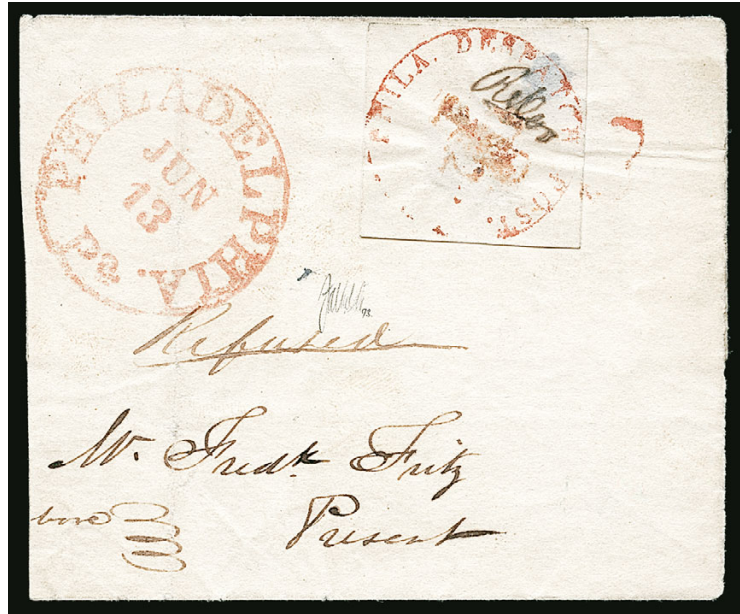 PHILADELPHIA. Pa
JUN
13
PHILA. DESPATCH POST.
Refused
Mr. Fredk Fritz
Present